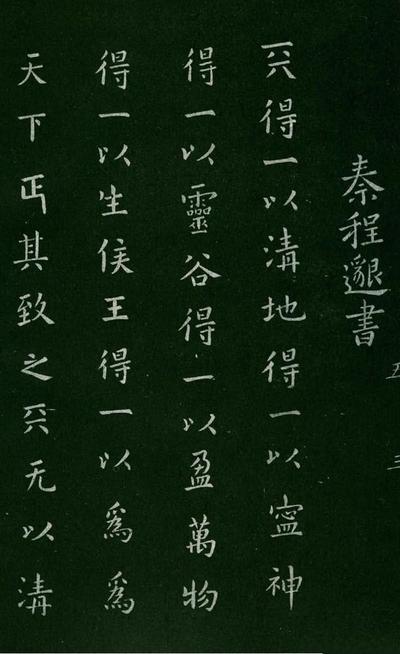 秦程邈書
天得一以清地得一以寍神
得一以靈谷得一以盈萬物
得一以生侯王得一以爲爲
天下正其致之天无以清